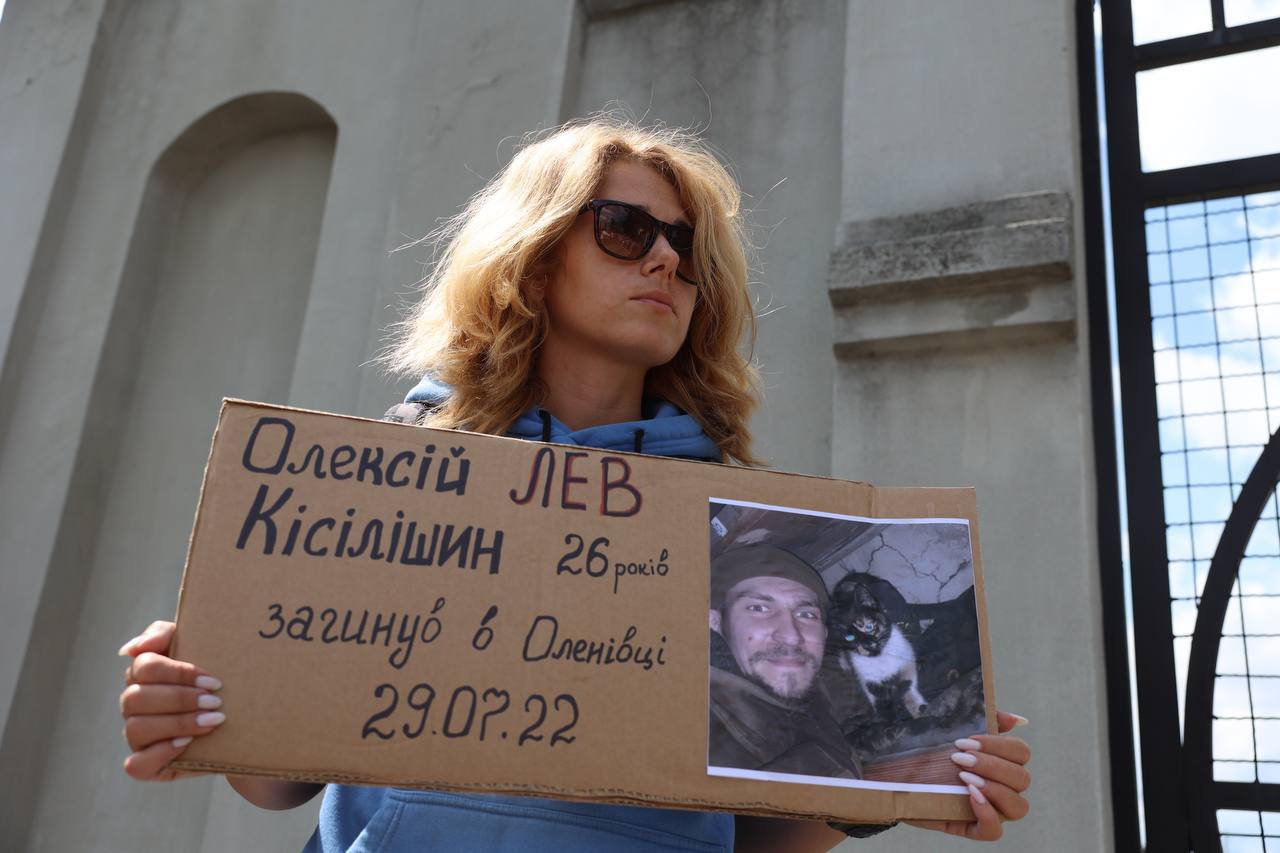 Олексій ЛЕВ
Кісілішин 26 років
загинув в Оленівці
29.07.22